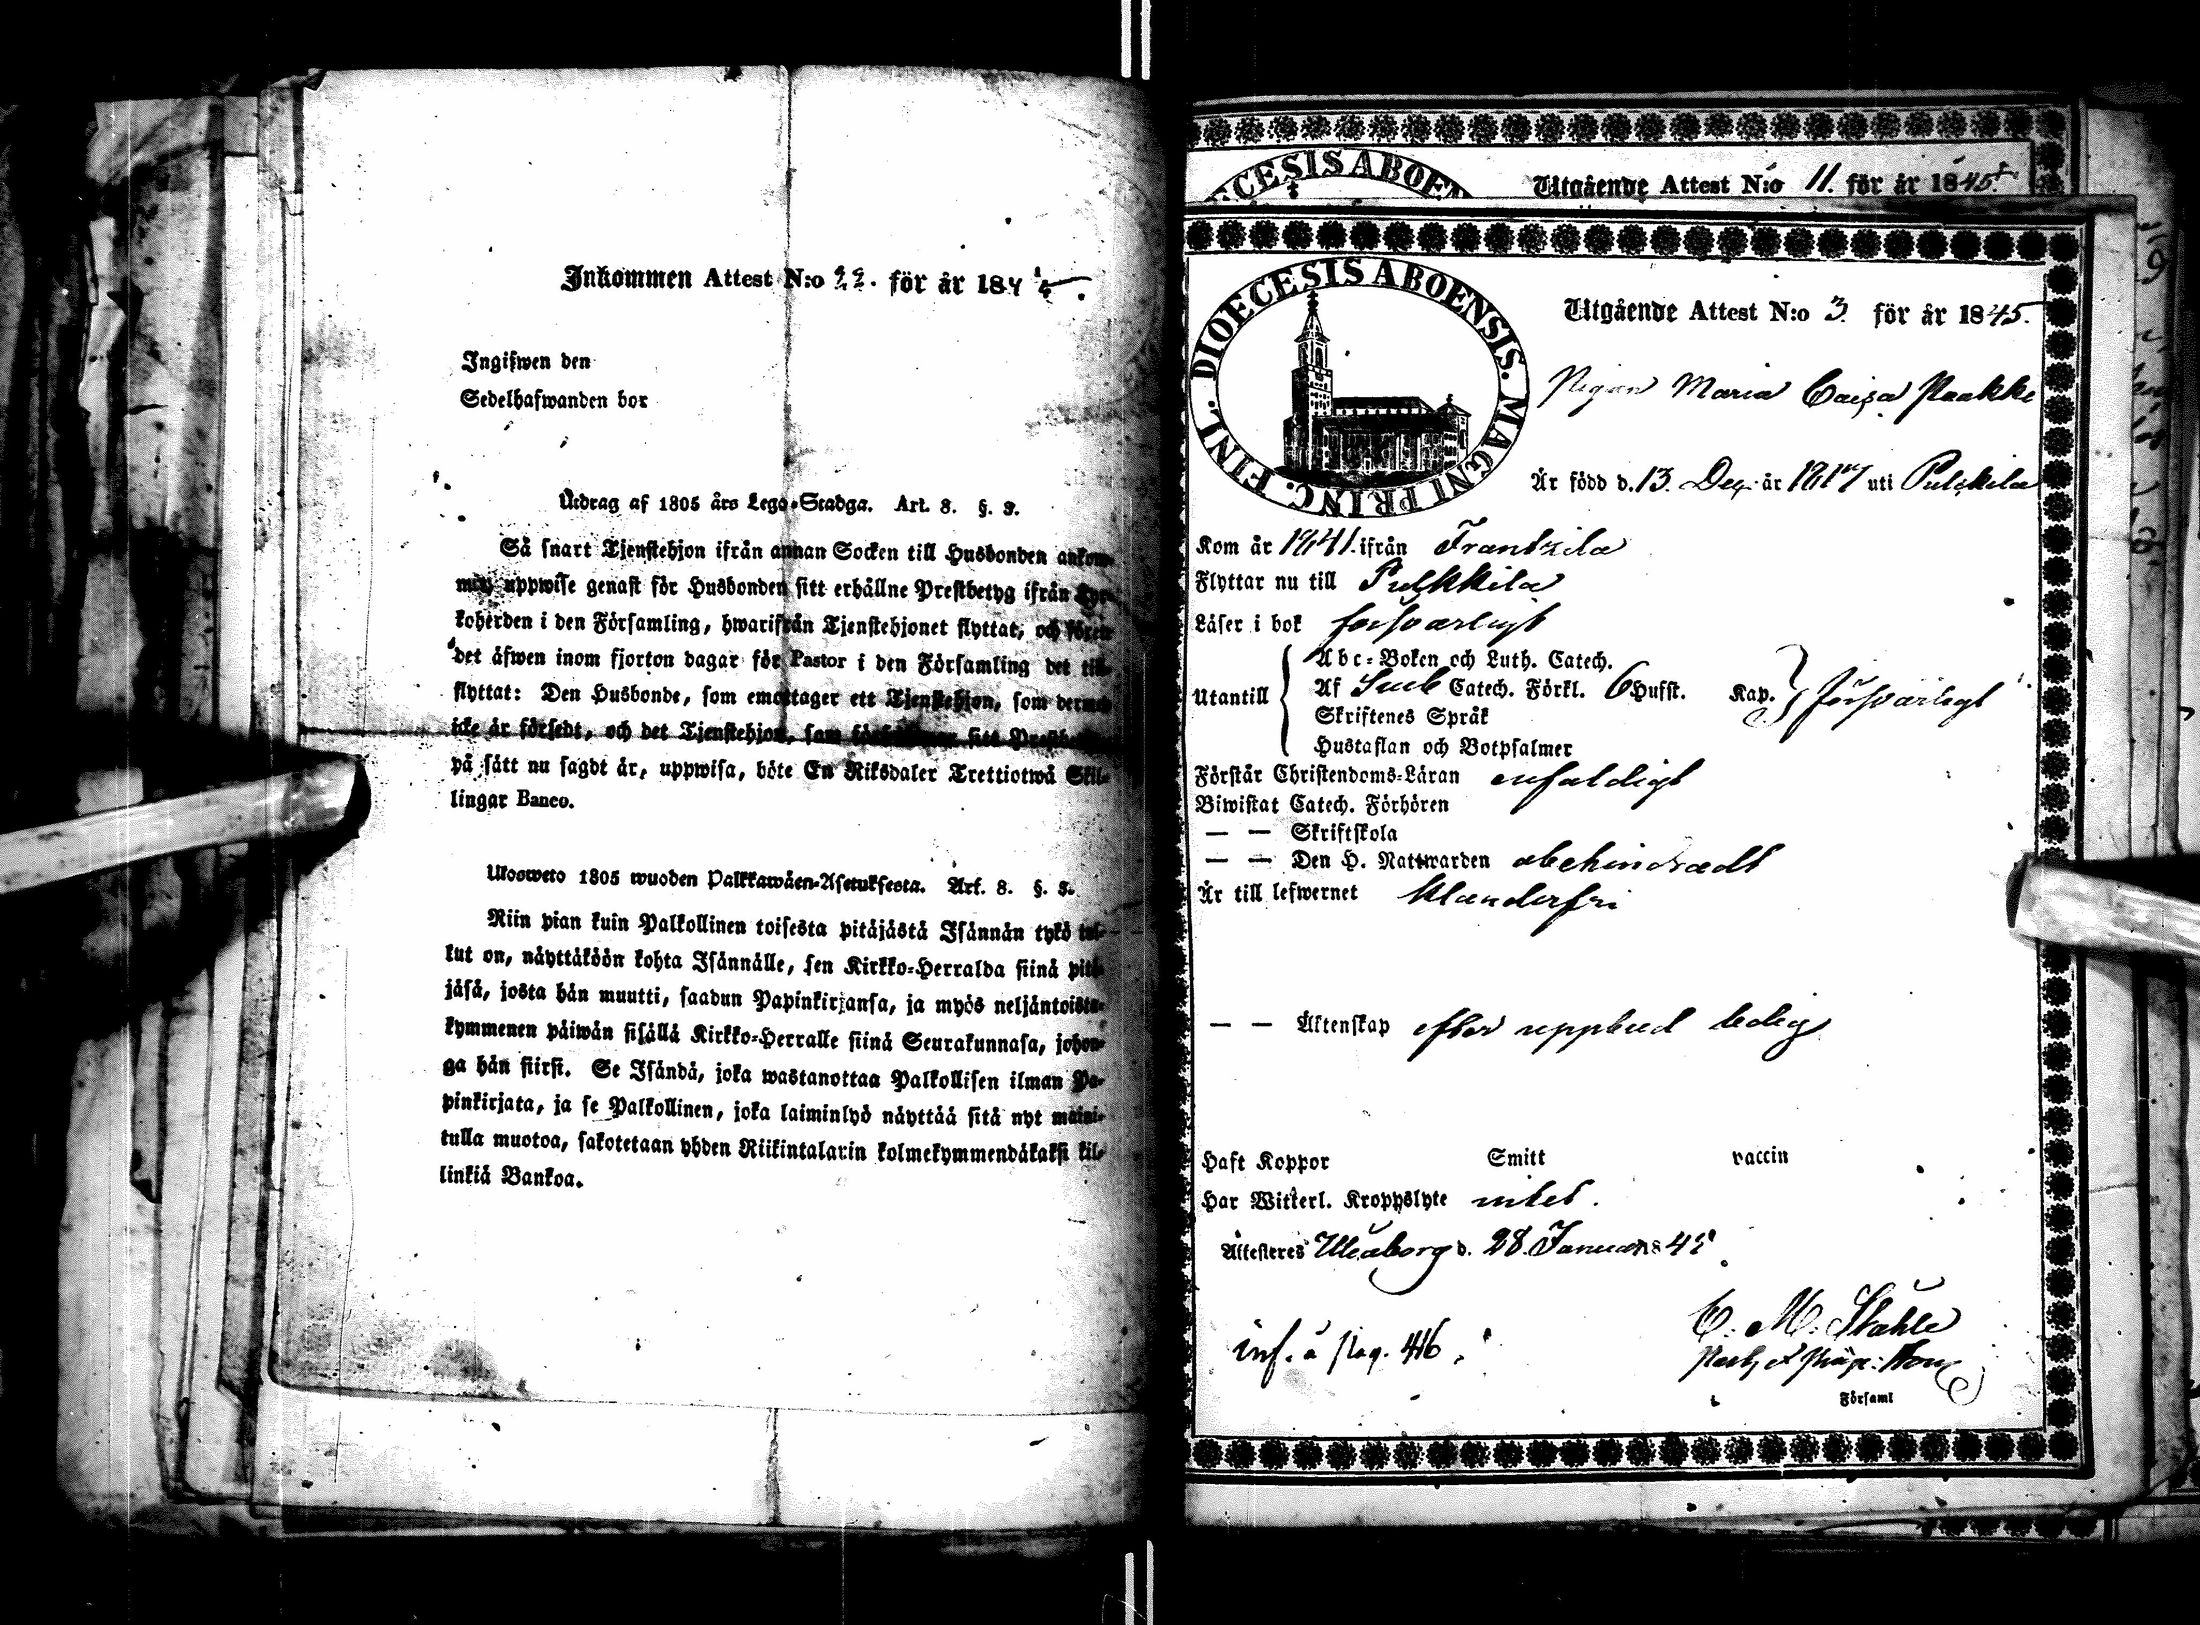 Inkommen Attest N:o 22. för år 1845.
Ingifwen den
Sedelhafwanden bor
Utdrag af 1805 års Lego-Stadga. Art. 8. §. 3.
Så snart Tjenstehjon ifrån annan Socken till Husbonden ankom-
mit, uppwise genast för Husbonden sitt erhållne Prestbetyg ifrån Kyr-
koherden i den Församling, hwarifrån Tjenstehjonet flyttat, och
det äfwen inom fjorton dagar för Pastor i den Församling det till-
flyttat: Den Husbonde, som emottager ett Tjenstehjon, som dermed
icke är försedt, och det Tjenstehjon, som sitt
på sätt nu sagdt är, uppwisa, böte En Riksdaler Trettiotwå Skil-
lingar Banco.
Ulosweto 1805 wuoden Palkkawäen-Asetuksesta. Art. 8. §. 3.
Niin pian kuin Palkollinen toisesta pitäjästä Isännän tykö tul-
kut on, näyttäköön kohta Isännälle, sen Kirkko-Herralda siinä pitä-
jäsä, josta hän muutti, saadun Papinkirjansa, ja myös neljäntoista-
kymmenen päiwän sisällä Kirkko-Herralle siinä Seurakunnasa, johon-
ga hän siirsi. Se Isändä, joka wastanottaa Palkollisen ilman Pa-
pinkirjata, ja se Palkollinen, joka laiminlyö näyttää sitä nyt maini-
tulla muotoa, sakotetaan yhden Riikintalarin kolmekymmendäkaksi kil-
linkiä Bankoa.
ECESIS ABOEN
Utgående Attest N:o 11. för år 1845.
DIOECESIS ABOENSIS. MAGNI PRINC. FINL.
Utgående Attest N:o 3. för år 1845.
Pigan Maria Caisa Paakke
Är född d. 13. Dec. år 1817 uti Pulckila
Kom år 1841. ifrån Frantzila
Flyttar nu till Pulkkila
Läser i bok försvarligt
Abc-Boken och Luth. Catech.
Utantill Af Sveb Catech. Förkl. 6 Hufst. Kap. försvarligt
Skriftenes Språk
Hustaflan och Botpsalmer
Förstår Christendoms-Läran enfaldigt
Biwistat Catech. Förhören
— — Skriftskola
— — Den H. Nattwarden obehindradt
Är till lefwernet klanderfri
— — Äktenskap efter uppbud ledig
Haft Koppor Smitt vaccin
Har Witterl. Kroppslyte intet.
Attesteres Uleåborg d. 28. Januari 1845
C: M: Ståhle
inf. å pag. 416.
Församl